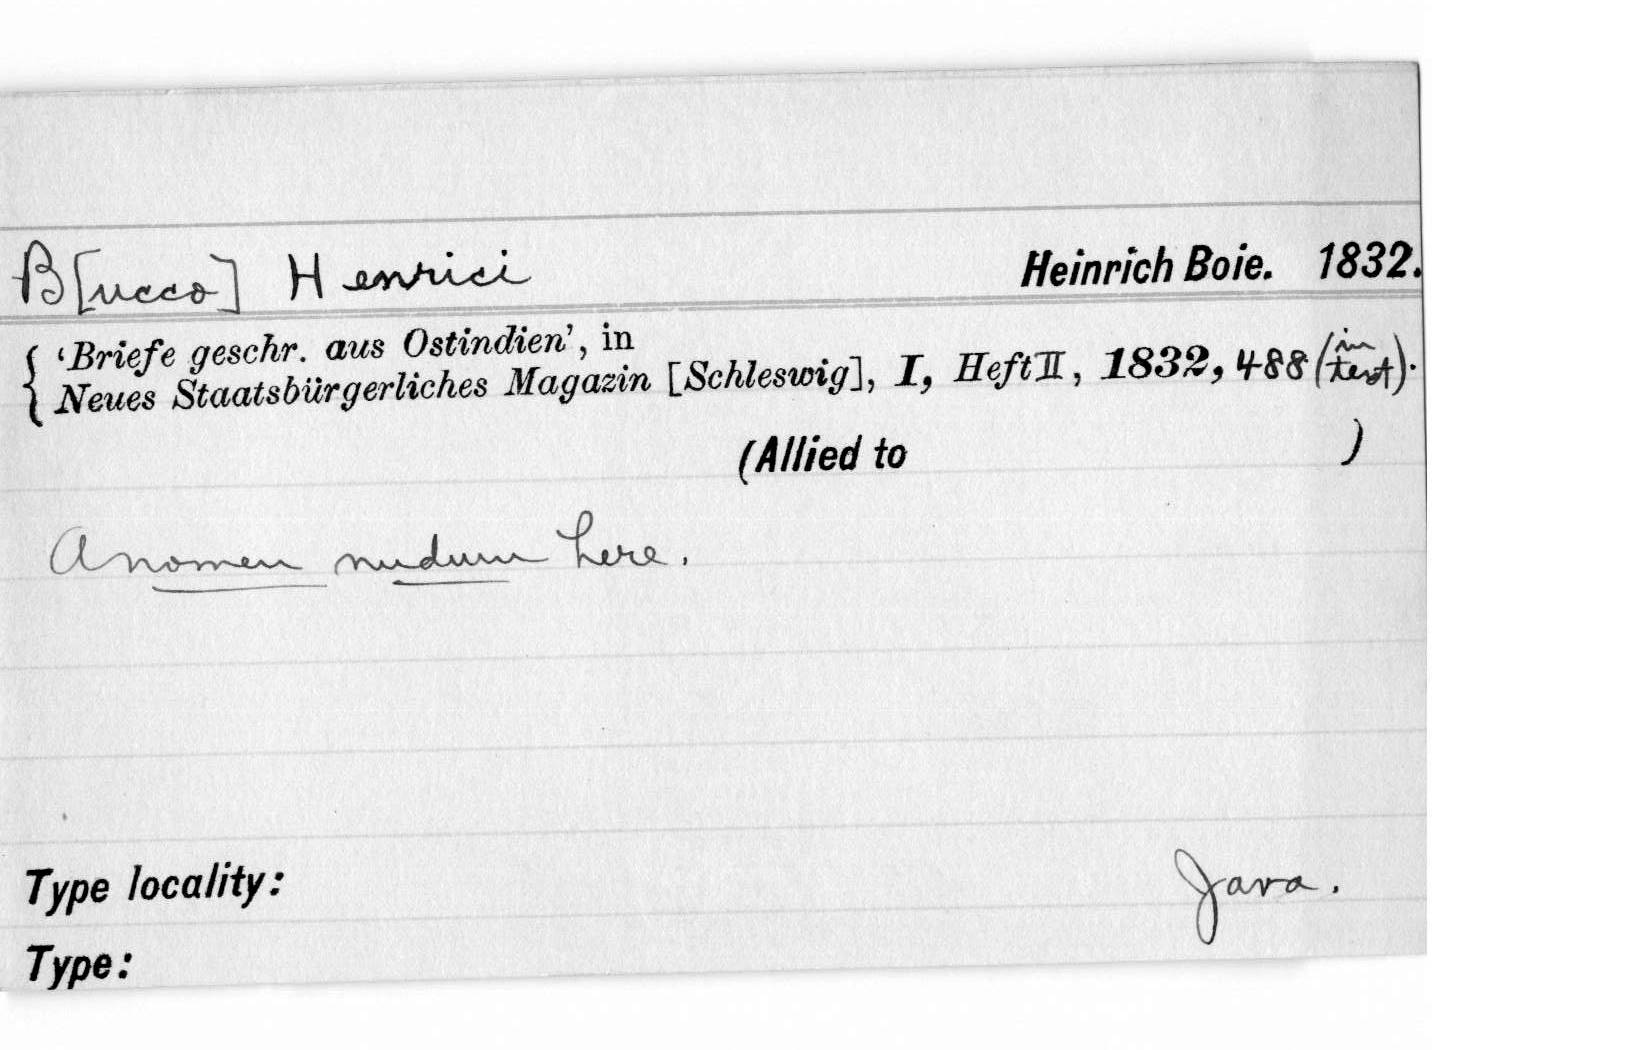 B[ucco] Henrici Heinrich Boie. 1832.
'Briefe geschr. aus Ostindien', in
Neues Staatsbürgerliches Magazin [Schleswig], I, Heft II, 1832, 488 (in text).
(Allied to )
A nomen nudum here.
Type locality: Java.
Type: